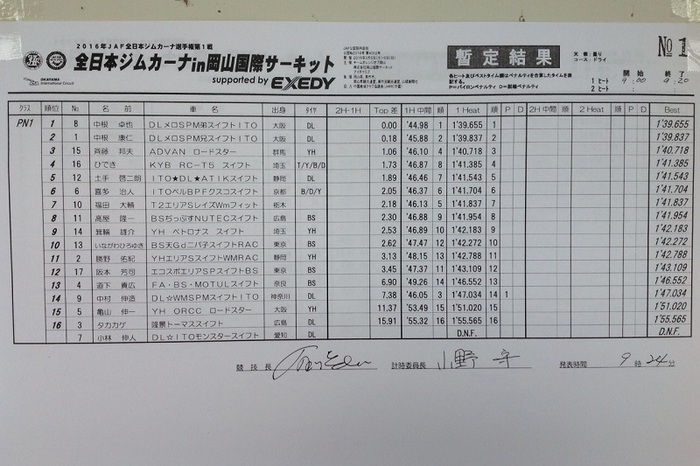 2016年JAF全日本ジムカーナ選手権第1戦
全日本ジムカーナin岡山国際サーキット
supported by EXEDY
暫定結果
天候:曇り
コース:ドライ
No 1
1 ヒート 開始 9:00 終了 9:20
2 ヒート : :
クラス 順位 No 名前 車名 出身 タイヤ 2H-1H Top差 1H中間 順 1 Heat 順 P D 2H中間 順 2 Heat 順 P D Best
PN1 1 8 中根 卓也 DLメロSPM弟スイフトITO 大阪 DL 0.00 '44.98 1 1'39.655 1 1'39.655
2 1 中根 康仁 DLメロSPM兄スイフトITO 大阪 DL 0.18 '45.88 2 1'39.837 2 1'39.837
3 15 斉藤 邦夫 ADVAN ロードスター 群馬 YH 1.06 '46.10 4 1'40.718 3 1'40.718
4 16 ひでき KYB RC-T5 スイフト 埼玉 T/Y/B/D 1.73 '46.87 8 1'41.385 4 1'41.385
5 12 土手 啓二朗 ITO★DL★ATiKスイフト 静岡 DL 1.89 '46.46 7 1'41.543 5 1'41.543
6 6 喜多 治人 ITOベルBPFグスコスイフト 京都 B/D/Y 2.05 '46.37 6 1'41.704 6 1'41.704
7 10 福田 大輔 T2エリアSレイズWmフィット 栃木 2.18 '46.13 5 1'41.837 7 1'41.837
8 11 高屋 隆一 BSちっぷすNUTECスイフト 広島 BS 2.30 '46.88 9 1'41.954 8 1'41.954
9 14 箕輪 雄介 YH ペトロナス スイフト 埼玉 YH 2.53 '46.89 10 1'42.183 9 1'42.183
10 13 いながわひろゆき BS天Gdニパ子スイフトRAC 東京 BS 2.62 '47.47 12 1'42.272 10 1'42.272
11 2 勝野 佑紀 YHエリアSスイフトWMRAC 静岡 YH 3.13 '48.15 13 1'42.788 11 1'42.788
12 17 阪本 芳司 エコスポエリアSPスイフトBS 東京 BS 3.45 '47.37 11 1'43.109 12 1'43.109
13 4 道下 貴広 FA・BS・MOTULスイフト 奈良 BS 6.90 '49.26 14 1'46.552 13 1'46.552
14 9 中村 伸造 DL☆WMSPMスイフトITO 神奈川 DL 7.38 '46.05 3 1'47.034 14 1 1'47.034
15 5 亀山 伸一 YH ORCC ロードスター 大阪 YH 11.37 '53.49 15 1'51.020 15 1'51.020
16 3 タカカゲ 隆景トーマススイフト 広島 15.91 '55.32 16 1'55.565 16 1'55.565
7 小林 伸人 DL☆ITOモンスタースイフト 愛知 DL D.N.F. D.N.F.
競技長 計時委員長 小野 守 発表時間 9時24分